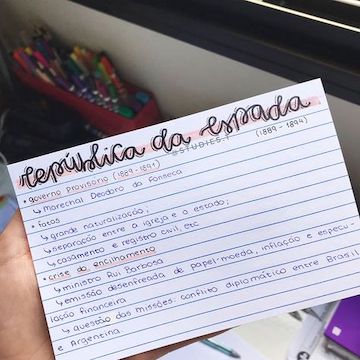 república da espada
@STUDIES.T
(1889-1894)
• governo provisório (1889-1891)
↳ Marechal Deodoro da Fonseca
• fatos
↳ grande naturalização;
↳ separação entre a igreja e o estado;
↳ casamento e registro civil, etc
• crise do encilhamento
↳ ministro Rui Barbosa
↳ emissão desenfreada de papel-moeda, inflação e especu-
lação financeira
↳ questão das missões: conflito diplomático entre Brasil
e Argentina.